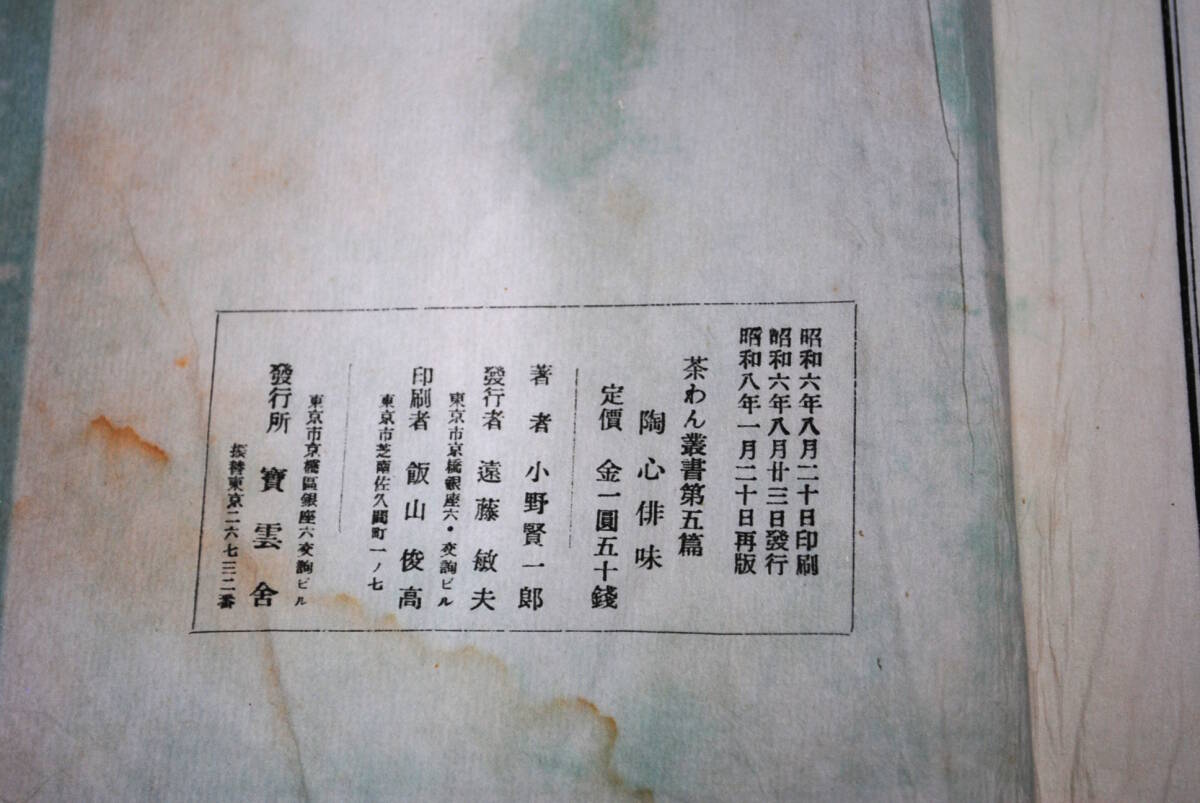 昭和六年八月二十日印刷
昭和六年八月廿三日發行
昭和八年一月二十日再版
茶わん叢書第五篇
陶心俳味
定價 金一圓五十錢
著者 小野賢一郎
發行者 遠藤敏夫
東京市京橋銀座六・交詢ビル
印刷者 飯山俊高
東京市芝南佐久間町一ノ七
東京市京橋區銀座六交詢ビル
發行所 寶雲舍
振替東京二六七三二番